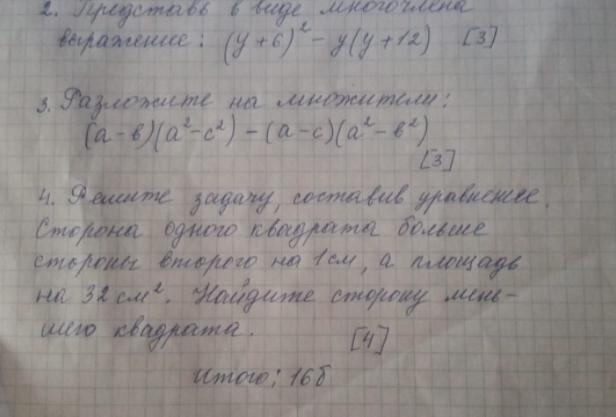 2. Представь в виде многочлена
выражение: (y+6)² - y(y+12) [3]
3. Разложите на множители:
(a-в)(a²-c²) - (a-c)(a²-в²)
[3]
4. Решите задачу, составив уравнение.
Сторона одного квадрата больше
стороны второго на 1 см, а площадь
на 32 см². Найдите сторону мень-
шего квадрата.
[4]
Итого: 16б